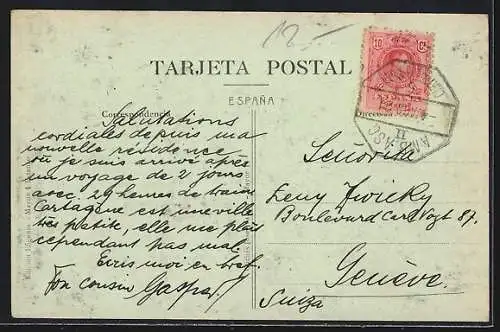 12.-
TARJETA POSTAL
ESPAÑA
Correspondencia
10 Cs
AMB. ASC.
II
Salutations
cordiales depuis ma
nouvelle résidence
où je suis arrivé après
un voyage de 2 jours
avec 29 heures de train
Cartagène est une ville
très petite, elle me plait
cependant pas mal.
Ecris moi en bref.
Ton cousin Gaspar
Señorita
Leny Zwicky
Boulevard Carl Vogt 87.
Genève.
Suiza